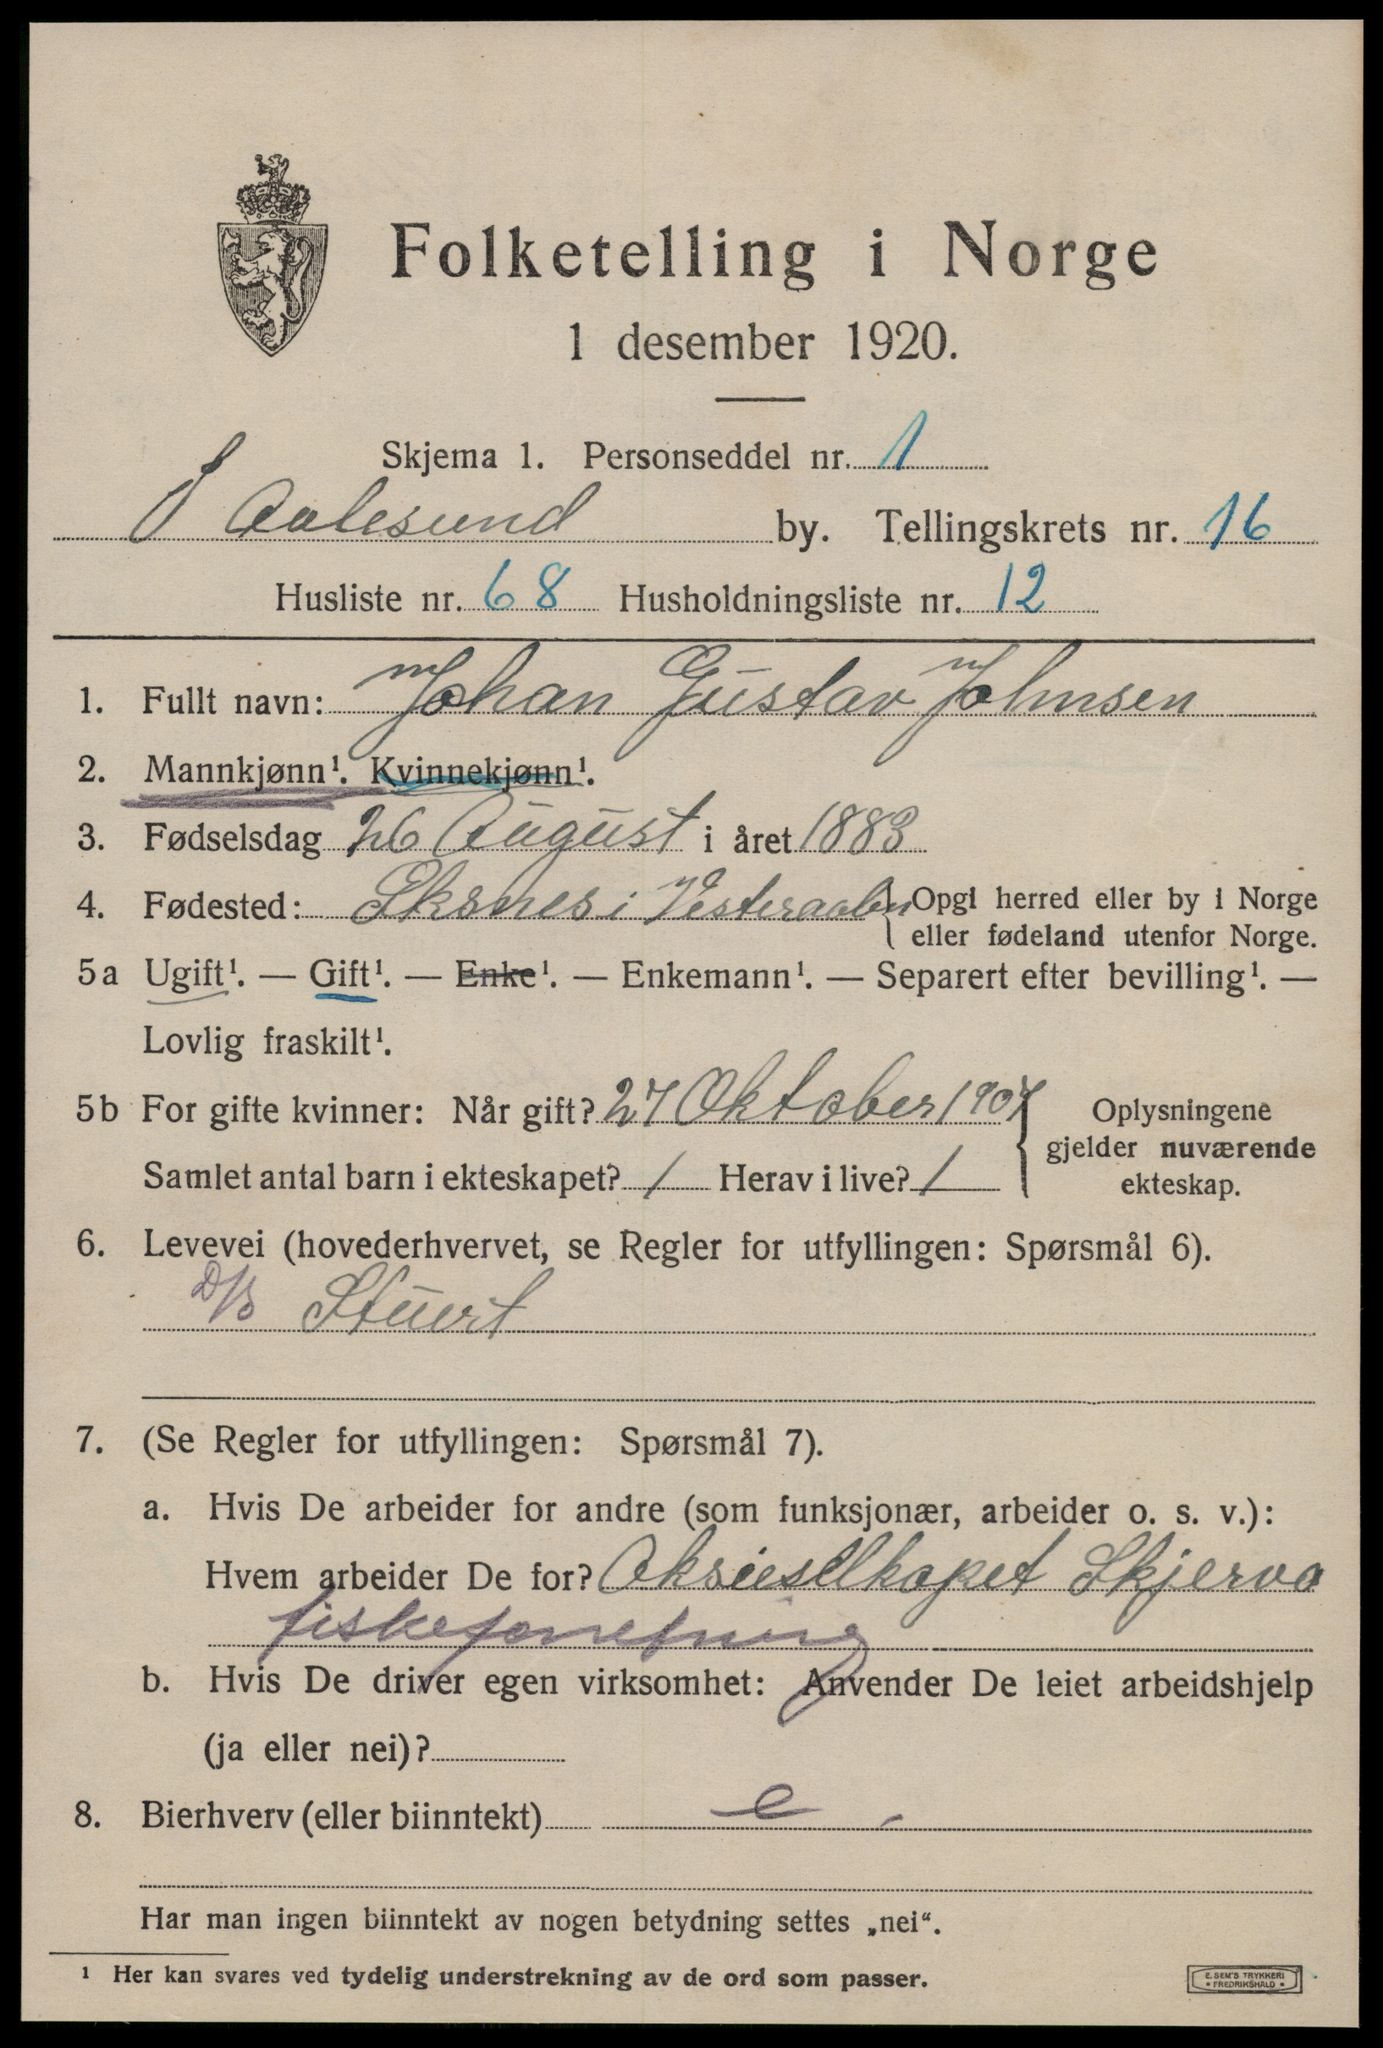 Folketelling i Norge
1 desember 1920.
Skjema 1. Personseddel nr. 1
I Aalesund by. Tellingskrets nr. 16
Husliste nr. 68 Husholdningsliste nr. 12
1. Fullt navn: Johan Gustav Johnsen
2. Mannkjønn¹. Kvinnekjønn¹.
3. Fødselsdag 26 August i året 1883
4. Fødested: Eksnes i Vesteraalen Opgi herred eller by i Norge
eller fødeland utenfor Norge.
5a Ugift¹. — Gift¹. — Enke¹. — Enkemann¹. — Separert efter bevilling¹. —
Lovlig fraskilt¹.
5b For gifte kvinner: Når gift? 27 Oktober 1907 Oplysningene
gjelder nuværende
Samlet antal barn i ekteskapet? 1 Herav i live? 1 ekteskap.
6. Levevei (hovederhvervet, se Regler for utfyllingen: Spørsmål 6).
D/B Stuert
7. (Se Regler for utfyllingen: Spørsmål 7).
a. Hvis De arbeider for andre (som funksjonær, arbeider o. s. v.):
Hvem arbeider De for? Aksieselkapet Skjerva
fiskeforretning
b. Hvis De driver egen virksomhet: Anvender De leiet arbeidshjelp
(ja eller nei)?
8. Bierhverv (eller biinntekt) e
Har man ingen biinntekt av nogen betydning settes „nei“.
¹ Her kan svares ved tydelig understrekning av de ord som passer.
E. SEM'S TRYKKERI
FREDRIKSHALD